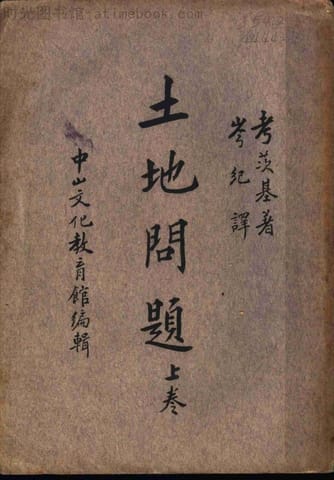 时光图书馆 - www.atimebook.com
考茨基著
岑紀譯
土地問題上卷
中山文化教育館編輯